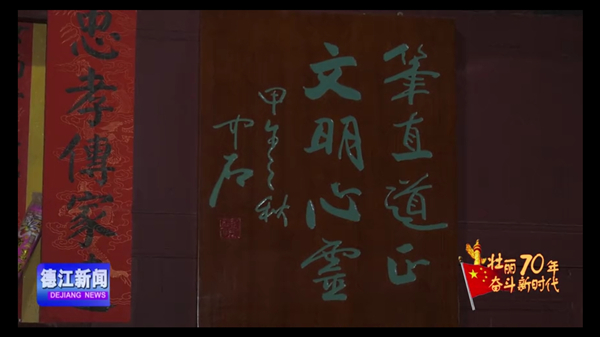 筆直道正
文明心靈
甲午之秋
中石
忠孝傳家
德江新闻
DEJIANG NEWS
壮丽70年
奋斗新时代